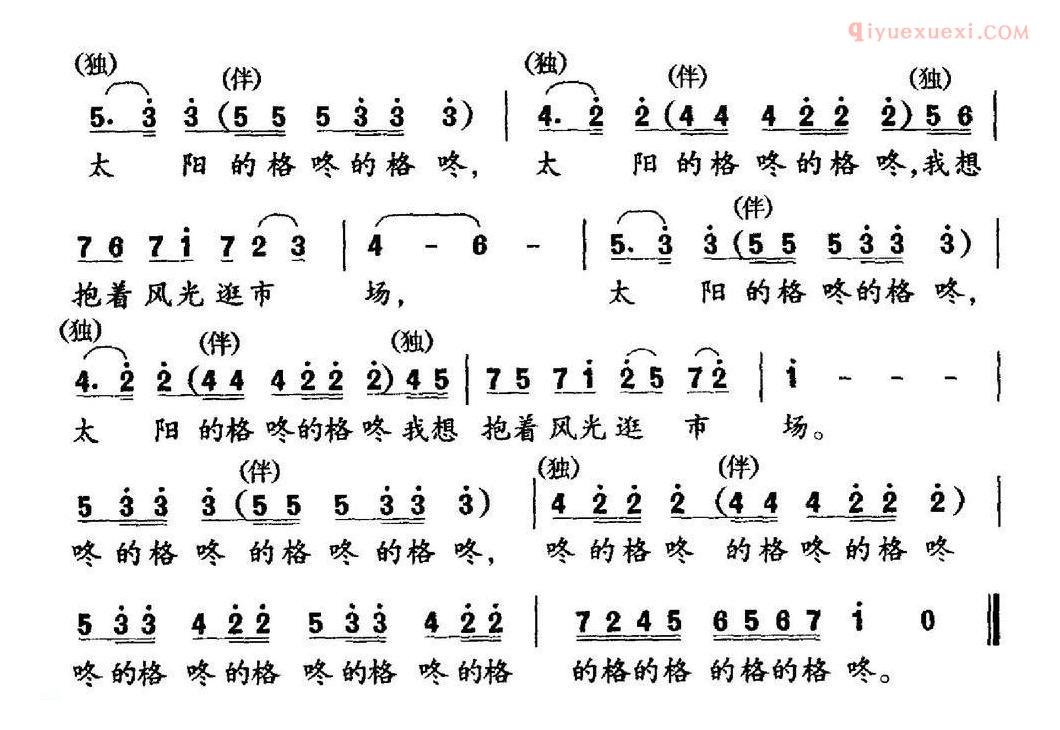 qiyuexuexi.COM
(独) (伴) (独) (伴) (独)
5. 3 3 (5 5 5 3 3 3) | 4. 2 2 (4 4 4 2 2 2) 5 6 |
太 阳的格咚的格咚, 太 阳的格咚的格咚,我想
(伴)
7 6 7 1 7 2 3 | 4 - 6 - | 5. 3 3 (5 5 5 3 3 3) |
抱着风光逛市 场, 太 阳的格咚的格咚,
(独) (伴) (独)
4. 2 2 (4 4 4 2 2 2) 4 5 | 7 5 7 1 2 5 7 2 | 1 - - - |
太 阳的格咚的格咚我想 抱着风光逛 市 场。
(伴) (独) (伴)
5 3 3 3 (5 5 5 3 3 3) | 4 2 2 2 (4 4 4 2 2 2) |
咚的格咚 的格咚的格咚, 咚的格咚 的格咚的格咚
5 3 3 4 2 2 5 3 3 4 2 2 | 7 2 4 5 6 5 6 7 1 0 ‖
咚的格 咚的格 咚的格 咚的格 的格的格 的格的格 咚。